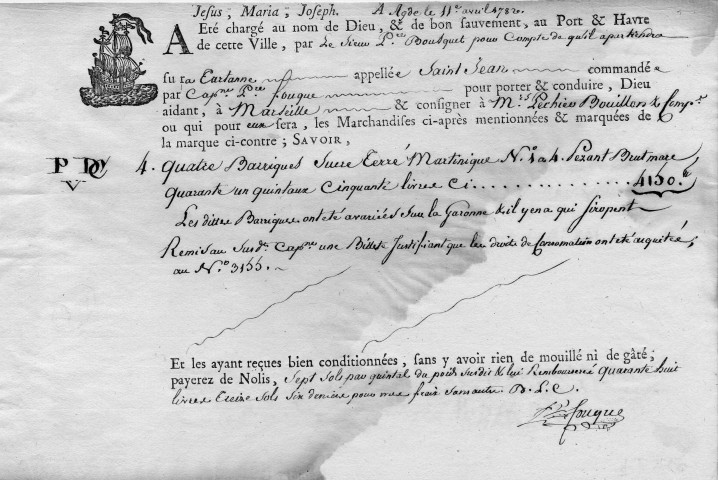 Jesus, Maria, Joseph. A Agde le 11e avril 1782.
A Eté chargé au nom de Dieu, & de bon sauvement, au Port & Havre
de cette Ville, par Le Sieur Pre Bousquet pour Compte de qu'il apartiendra
sur sa Tartanne appellée Saint Jean commandée
par Capne Pre fouque pour porter & conduire, Dieu
aidant, à Marseille & consigner à Mrs Bouillon & Compe
ou qui pour eux sera, les Marchandises ci-après mentionnées & marquées de
la marque ci-contre; SAVOIR,
P DC V
4. Quatre Barriques Sucre Terré Martinique N.o 1 a 4. Pezant Brut marc
Quarante un quintaux Cinquante livres Ci . . . . . . . . . . 4150.lt
Les dittes Barriques ont eté avariées Sur la Garonne & il y en a qui Siropent
Remis au Surdt Capne une Billete Justifiant que les droits de Consomation ont eté acquités
au N.o 3155.
Et les ayant reçues bien conditionnées, sans y avoir rien de mouillé ni de gâté;
payerez de Nolis, Sept Sols par quintal du poids Surdit & lui Rembourseré Quarante huit
livres Treize Sols Six deniers pour mes fraix Sans autre D. L. C.
Pre fouque